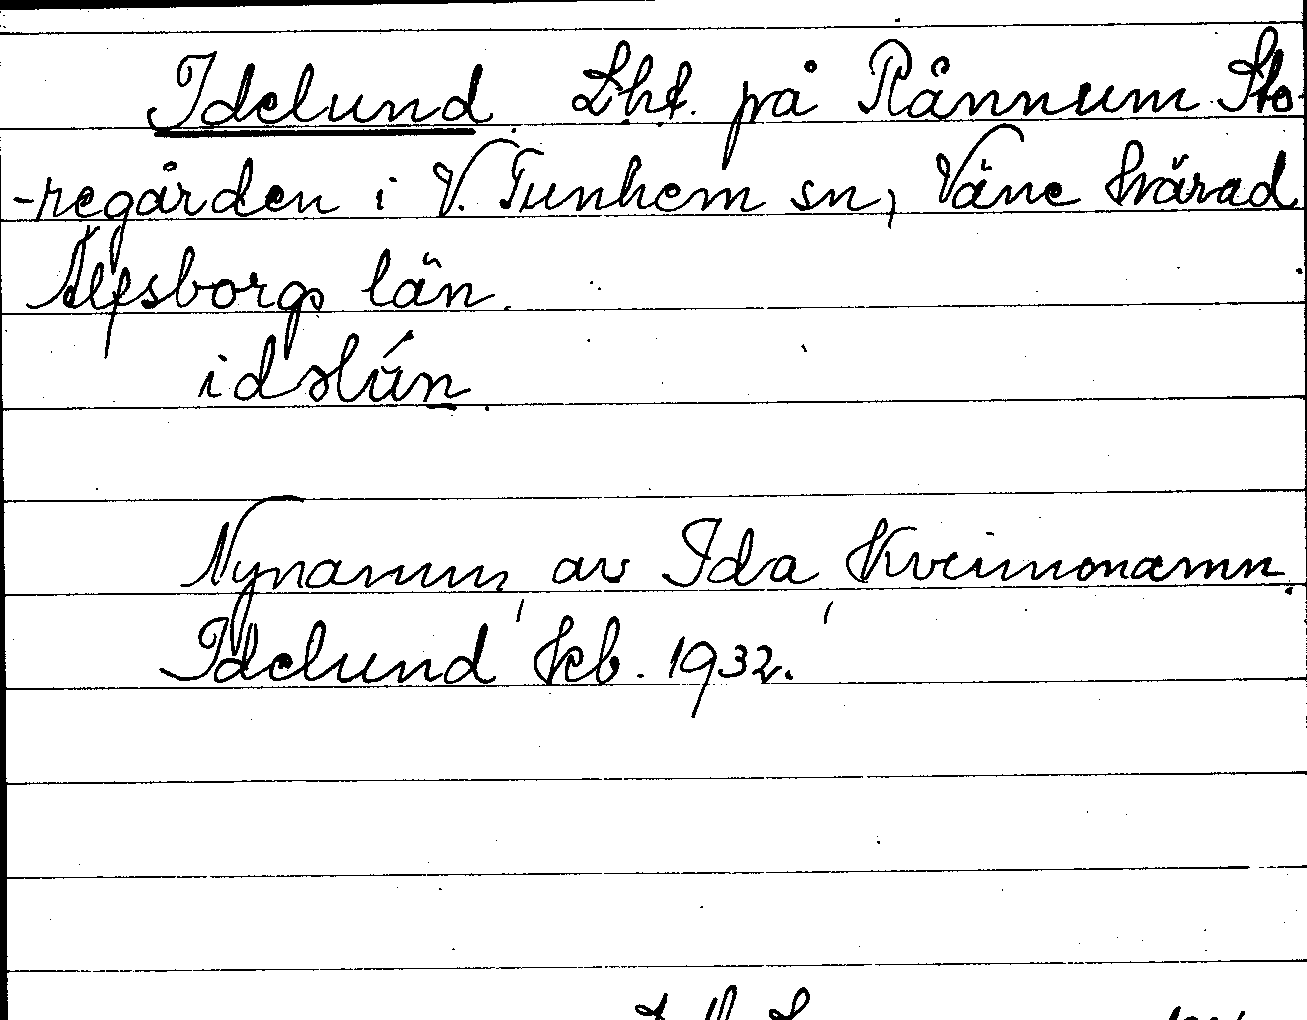 Idelund. Lht. på Rånnum Sto-
-regården i V. Tunhem sn, Väne härad
Älfsborgs län.
idəlún.
Nynamn, av Ida Kvinnonamn.
Idelund feb. 1932.